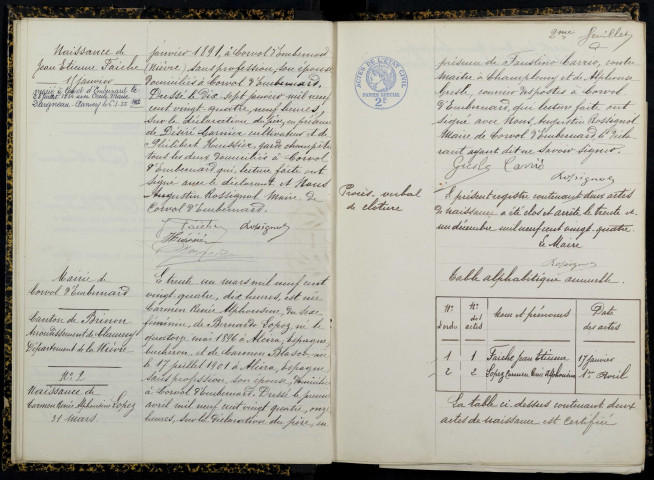 Naissance de
Jean Etienne Faiche
17 janvier
marié à Corvol d'Embernard le
janvier 1891, à Corvol d'Embernard
Nièvre, sans profession, son épouse
domiciliés à Corvol d'Embernard.
Dressé le dix sept janvier mil neuf
cent vingt-quatre, neuf heures,
sur la déclaration du père, en présence
de Désiré Carnier cultivateur et de
Philibert Houssier, garde champêtre
tous les deux domiciliés à Corvol
d'Embernard qui, lecture faite ont
signé avec le déclarant et Nous
Augustin Rossignol Maire de
Corvol d'Embernard.
Faiche Rossignol
Mairie de
Corvol d'Embernard
Canton de Brinon
Arrondissement de Clamecy
Département de la Nièvre
N° 2
Naissance de
Carmen Renée Alphonsine Lopez
31 mars.
Le trente un mars mil neuf cent
vingt quatre, dix heures, est née
Carmen Renée Alphonsine, du sexe
féminin, de Bernardo Lopez né le
quatorze mai 1896 à Alcira, Espagne,
bucheron, et de Carmen Blasco née
le 17 juillet 1901 à Alcira, Espagne,
sans profession, son épouse, domiciliés
à Corvol d'Embernard. Dressé le premier
avril mil neuf cent vingt quatre, onze
heures, sur la déclaration du père, en
2me feuillet
ACTES DE L'ÉTAT CIVIL
PAPIER SPÉCIAL
2c
présence de Faustino Carrio, contre
maitre à Champlemy et de Alphonse
Gresle, courrier des postes à Corvol
d'Embernard qui lecture faite ont
signé avec Nous, Augustin Rossignol
Maire de Corvol d'Embernard le décla
rant ayant dit ne savoir signer.
Gresle Carrió
Rossignol
Procès-verbal
de clôture
Le présent registre contenant deux actes
de naissance a été clos et arrêté le trente et
un décembre mil neuf cent vingt quatre.
Le Maire
Rossignol
Table alphabétique annuelle
Nos d'ordre Nos des actes Nom et prénoms Date des actes
1 1 Faiche Jean Etienne 17 janvier
2 2 Lopez Carmen Renée Alphonsine 1er Avril
La table ci dessus contenant deux
actes de naissance est certifiée